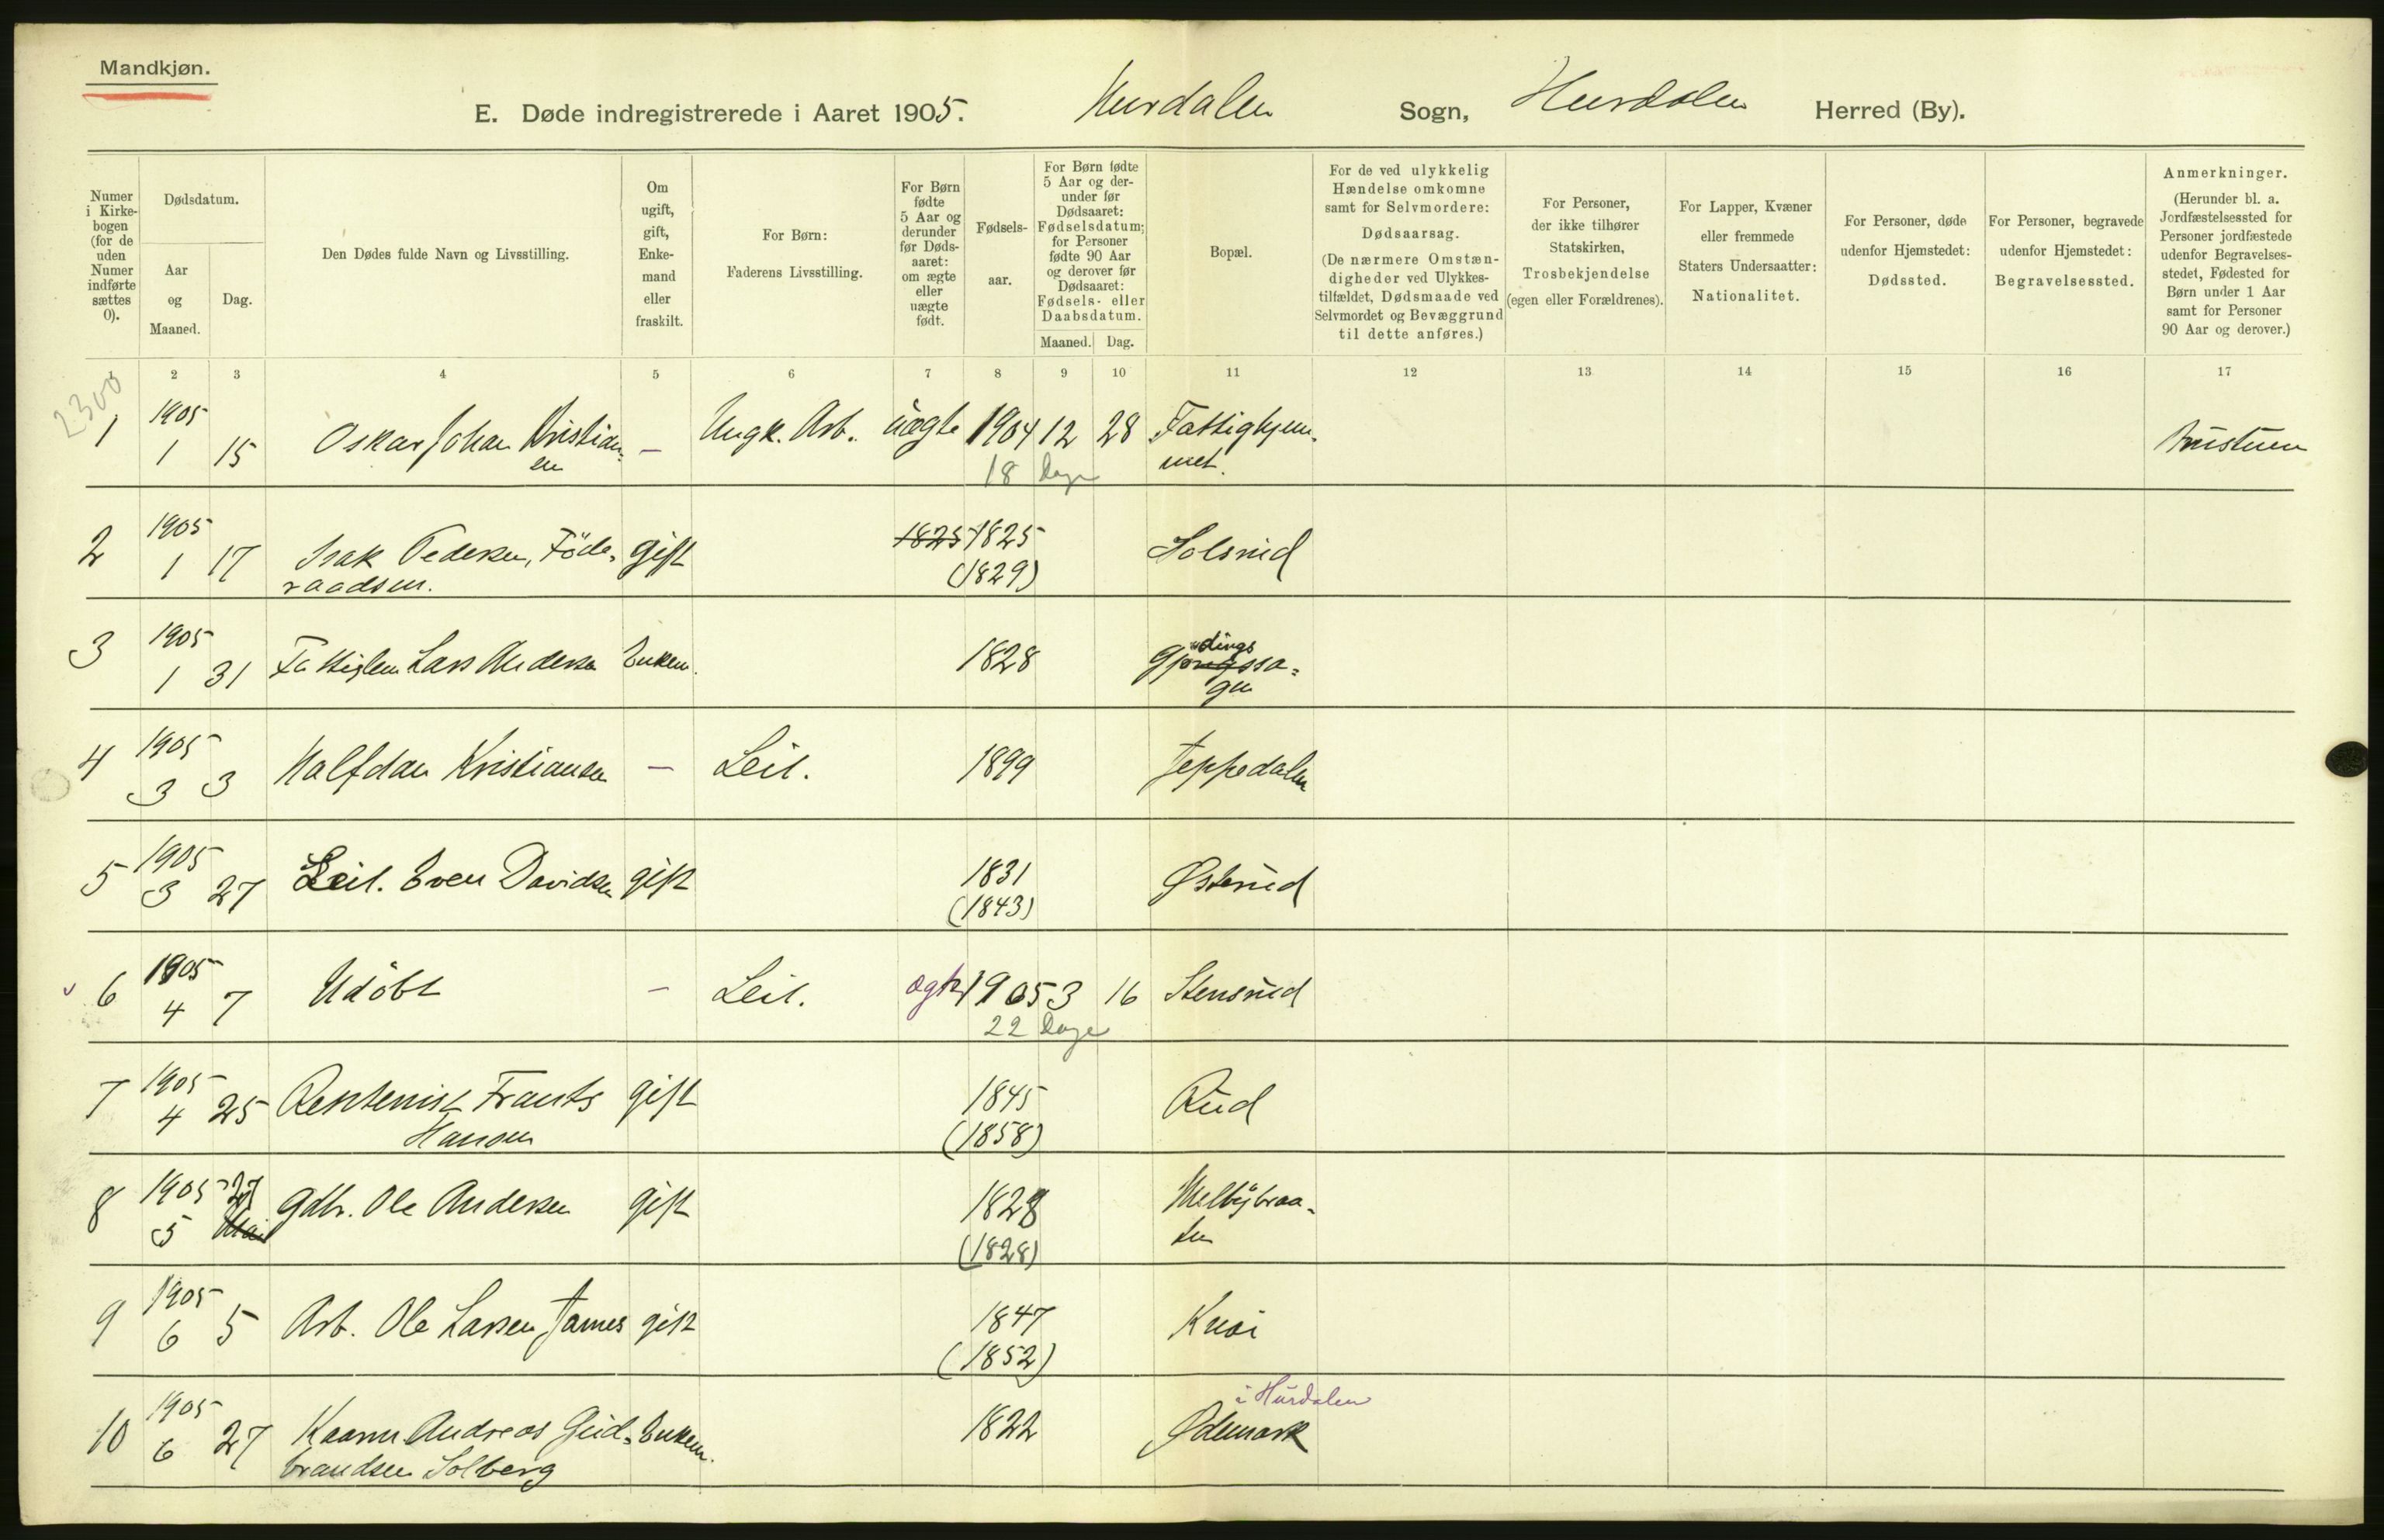 Mandkjøn.
E. Døde indregistrerede i Aaret 1905. Hurdalen Sogn, Hurdalen Herred (By).
Numer i Kirke-bogen (for de uden Numer indførte sættes 0).
Dødsdatum.
Aar og Maaned.
Dag.
Den Dødes fulde Navn og Livsstilling.
Om ugift, gift, Enke-mand eller fraskilt.
For Børn: Faderens Livsstilling.
For Børn fødte 5 Aar og derunder før Døds-aaret: om ægte eller uægte født.
Fødsels-aar.
For Børn fødte 5 Aar og der-under før Dødsaaret: Fødselsdatum; for Personer fødte 90 Aar og derover før Dødsaaret: Fødsels- eller Daabsdatum.
Maaned. Dag.
Bopæl.
For de ved ulykkelig Hændelse omkomne samt for Selvmordere: Dødsaarsag. (De nærmere Omstæn-digheder ved Ulykkes-tilfældet, Dødsmaade ved Selvmordet og Bevæggrund til dette anføres.)
For Personer, der ikke tilhører Statskirken, Trosbekjendelse (egen eller Forældrenes).
For Lapper, Kvæner eller fremmede Staters Undersaatter: Nationalitet.
For Personer, døde udenfor Hjemstedet: Dødssted.
For Personer, begravede udenfor Hjemstedet: Begravelsessted.
Anmerkninger. (Herunder bl. a. Jordfæstelsessted for Personer jordfæstede udenfor Begravelses-stedet, Fødested for Børn under 1 Aar samt for Personer 90 Aar og derover.)
2 3 4 5 6 7 8 9 10 11 12 13 14 15 16 17
2300
1 1905 1 15 Oskar Johan Kristian=en — Ungk. Arb. uægte 1904 12 28 Fattighjem-met.
18 Dage
2 1905 1 17 Isak Pedersen, Föde-raadsm. gift 1825 1825 (1829) Solsrud
3 1905 1 31 Fattiglem Lars Andersen Enkem. 1828
4 1905 3 3 Halfdan Kristiansen — Leil. 1899 Jeppedalen
5 1905 3 27 Leil. Even Davidsen gift 1831 (1843) Østerud
6 1905 4 7 Udöbt — Leil. ægte 1905 3 16 Stensrud
22 Dage
7 1905 4 25 Frants Hansen gift 1845 (1858) Rud
8 1905 5 27 Gdbr. Ole Andersen gift 1828 (1828) Melbybraa-ten
9 1905 6 5 Arb. Ole Larsen James gift 1847 (1852) Knai
10 1905 6 27 Kaarm. Andreas Gud-brandsen Solberg Enkem. 1822 Ødemark
i Hurdalen